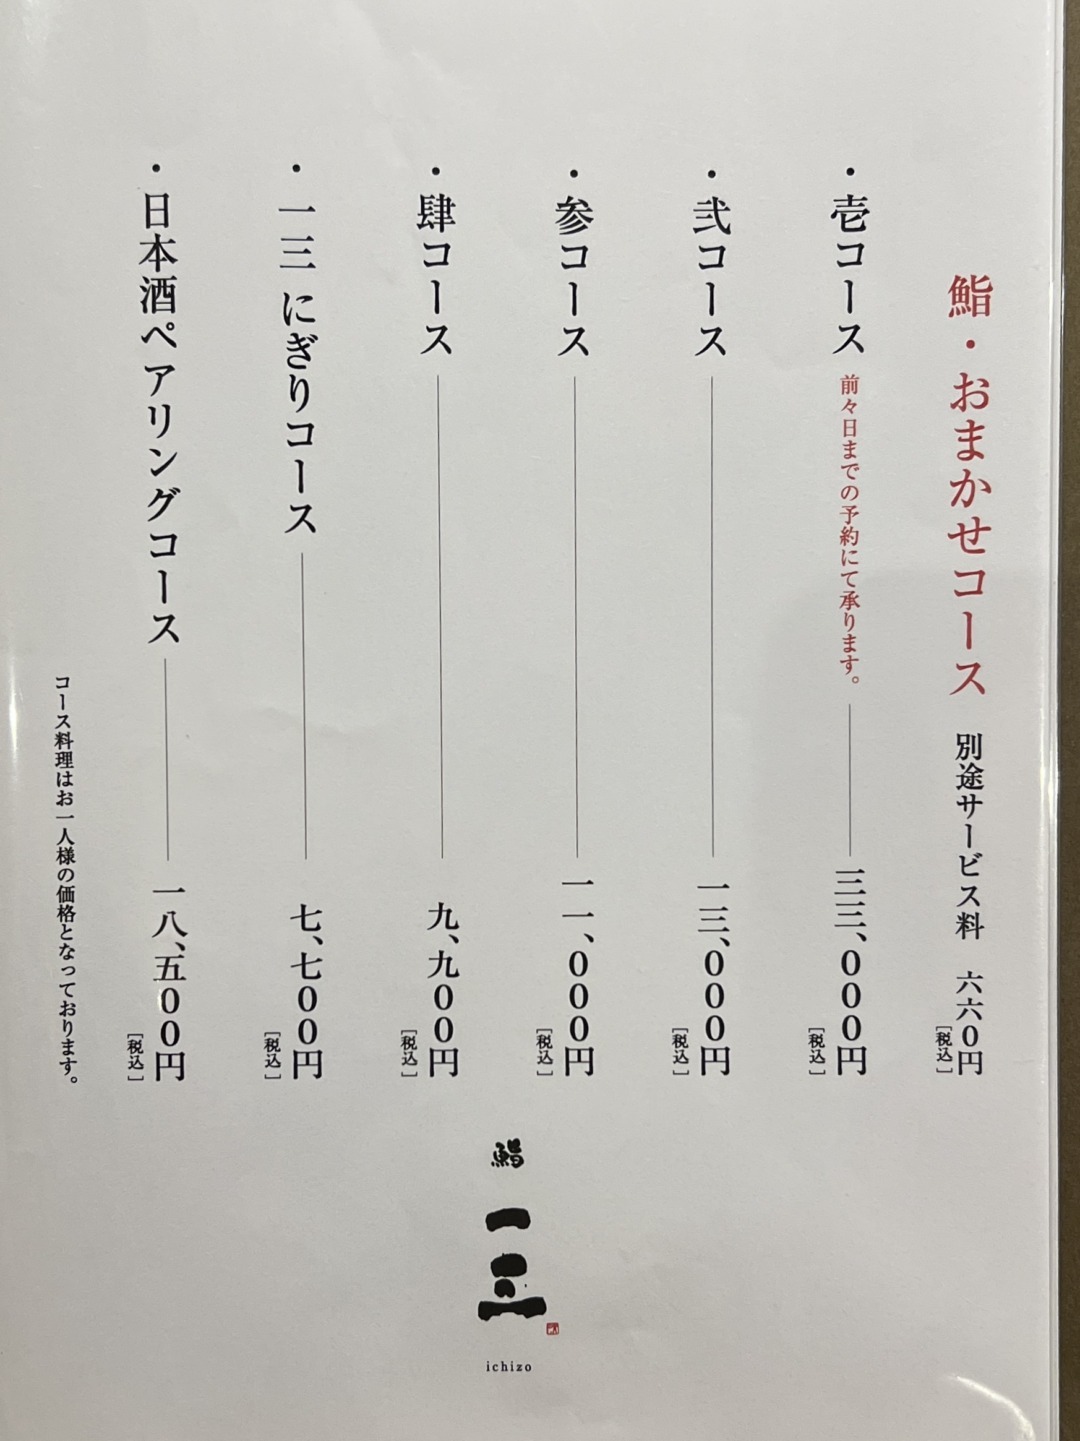 鮨・おまかせコース 別途サービス料 六六０円[税込]
・壱コース 前々日までの予約にて承ります。 三三、０００円[税込]
・弐コース 一三、０００円[税込]
・参コース 一一、０００円[税込]
・肆コース 九、九００円[税込]
・一三 にぎりコース 七、七００円[税込]
・日本酒ペアリングコース 一八、五００円[税込]
コース料理はお一人様の価格となっております。
鮨 一三
ichizo